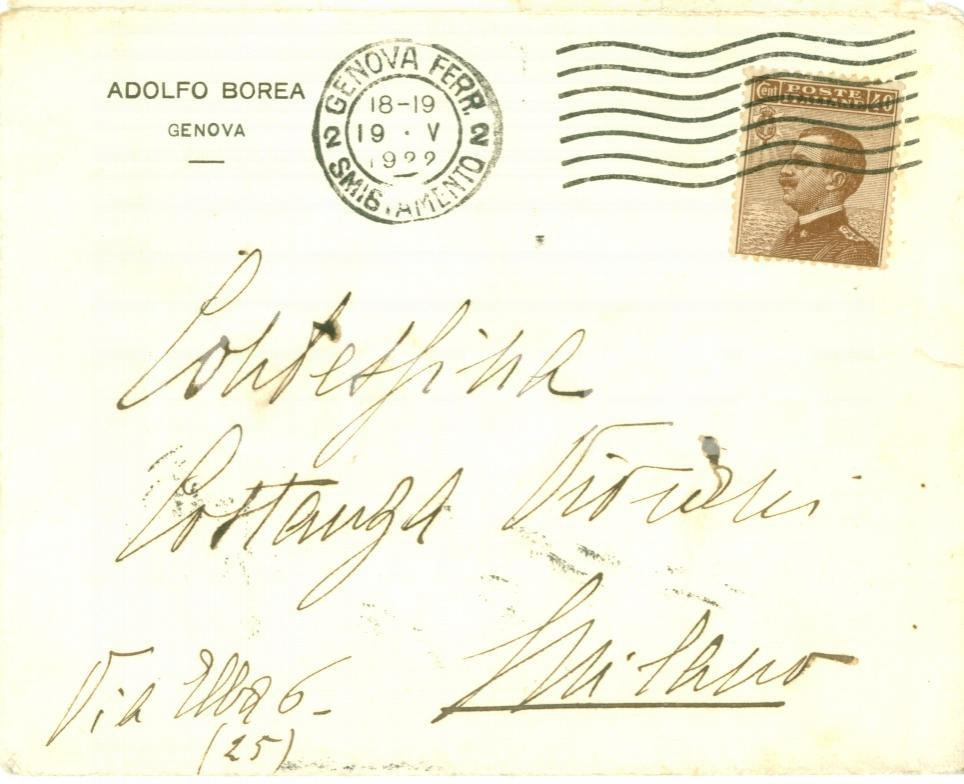 ADOLFO BOREA
GENOVA
GENOVA FERR. 2
18-19
19 · V
1922
2 SMISTAMENTO
Cent POSTE 40
ITALIANE
Contessina
Costanza
Milano
Via Elba 6 -
(25)